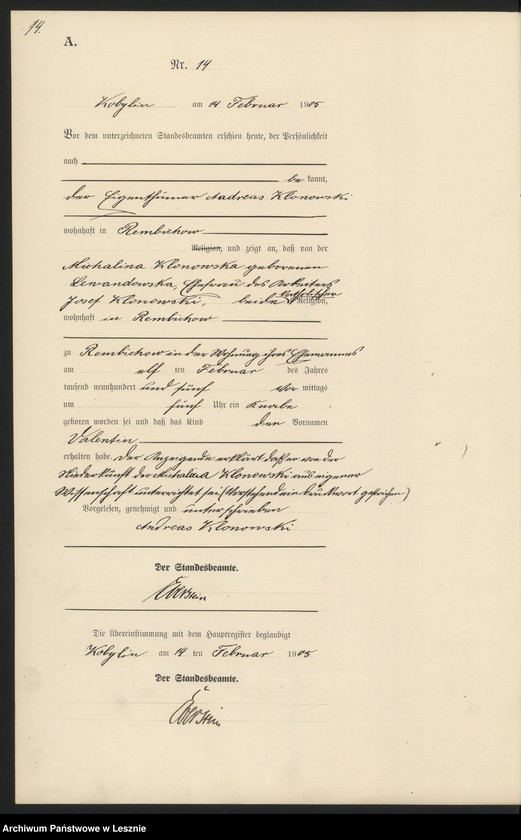 14.
A.
Nr. 14
Kobylin am 14 Februar 1905
Vor dem unterzeichneten Standesbeamten erschien heute, der Persönlichkeit
nach
be kannt,
der Eigenthümer Andreas Klonowski
wohnhaft in Rembichow
Religion, und zeigt an, daß von der
Michalina Klonowska geborenen
Lewandowska, Ehefrau des Arbeiters
Josef Klonowski, beide katholischer Religion,
wohnhaft in Rembichow
zu Rembichow in der Wohnung ihres Ehemannes
am elf ten Februar des Jahres
tausend neunhundert und fünf Vor mittags
um fünf Uhr ein Knabe
geboren worden sei und daß das Kind den Vornamen
Valentin
erhalten habe. Der Anzeigende erklärt daß er von der
Niederkunft der Michalina Klonowski aus eigener
Wissenschaft unterrichtet sei (Vorstehend ein Druckwort gestrichen)
Vorgelesen, genehmigt und unterschrieben
Andreas Klonowski
Der Standesbeamte.
Eberstein
Die Übereinstimmung mit dem Hauptregister beglaubigt
Kobylin am 14 ten Februar 1905
Der Standesbeamte.
Eberstein
Archiwum Państwowe w Lesznie